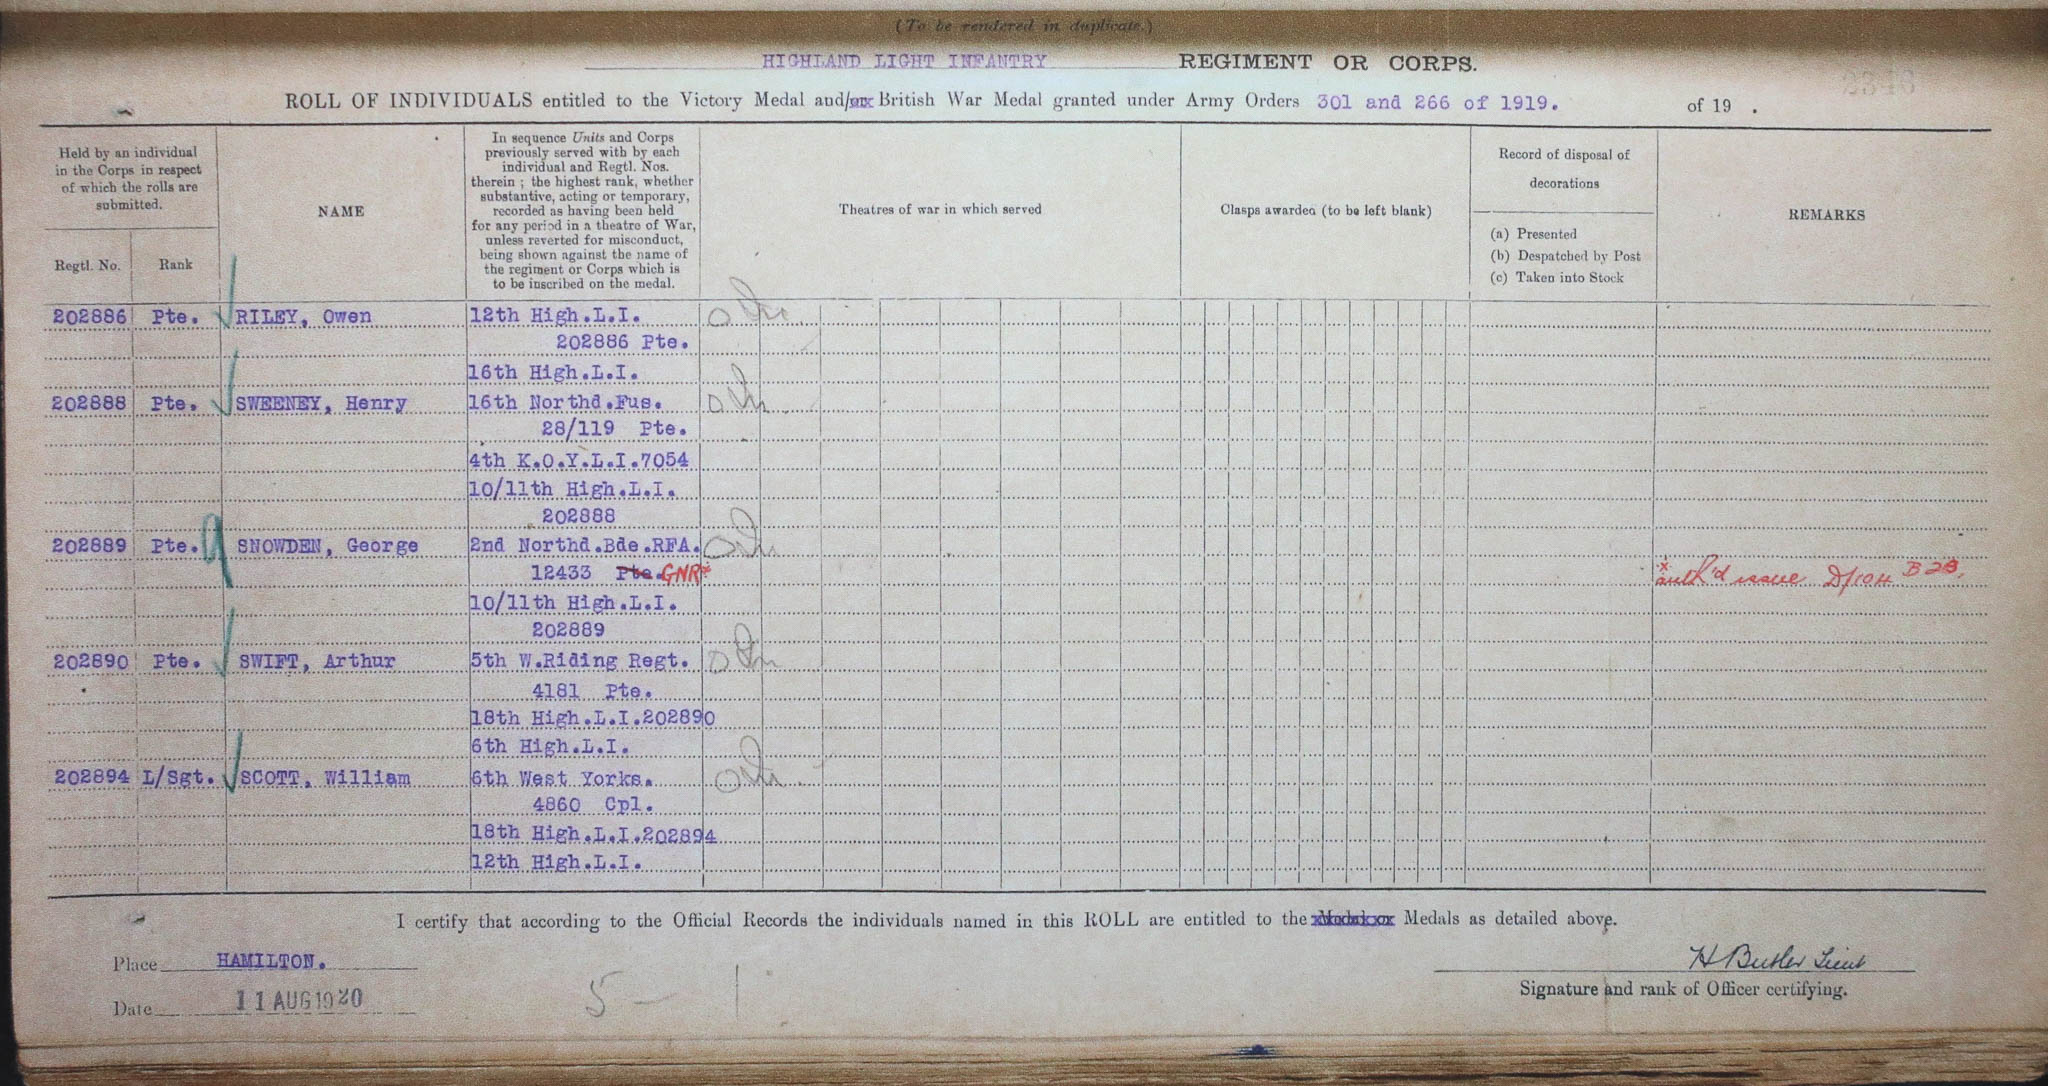 (To be rendered in duplicate.)
HIGHLAND LIGHT INFANTRY REGIMENT OR CORPS.
ROLL OF INDIVIDUALS entitled to the Victory Medal and/ British War Medal granted under Army Orders 301 and 266 of 1919. of 19 .
Held by an individual
in the Corps in respect
of which the rolls are
submitted.
Regtl. No. Rank
NAME
In sequence Units and Corps
previously served with by each
individual and Regtl. Nos.
therein ; the highest rank, whether
substantive, acting or temporary,
recorded as having been held
for any period in a theatre of War,
unless reverted for misconduct,
being shown against the name of
the regiment or Corps which is
to be inscribed on the medal.
Theatres of war in which served
Clasps awarded (to be left blank)
Record of disposal of
decorations
(a) Presented
(b) Despatched by Post
(c) Taken into Stock
REMARKS
202886 Pte. RILEY, Owen 12th High.L.I.
202886 Pte.
16th High.L.I.
202888 Pte. SWEENEY, Henry 16th Northd.Fus.
28/119 Pte.
4th K.O.Y.L.I.7054
10/11th High.L.I.
202888
202889 Pte. SNOWDEN, George 2nd Northd.Bde.RFA.
12433 Pte. GNR* * auth'd issue D/10H B 2B.
10/11th High.L.I.
202889
202890 Pte. SWIFT, Arthur 5th W.Riding Regt.
4181 Pte.
18th High.L.I.202890
6th High.L.I.
202894 L/Sgt. SCOTT, William 6th West Yorks.
4860 Cpl.
18th High.L.I.202894
12th High.L.I.
I certify that according to the Official Records the individuals named in this ROLL are entitled to the Medals as detailed above.
Place HAMILTON.
H Butler Lieut
Signature and rank of Officer certifying.
Date 11 AUG 1920
5 -